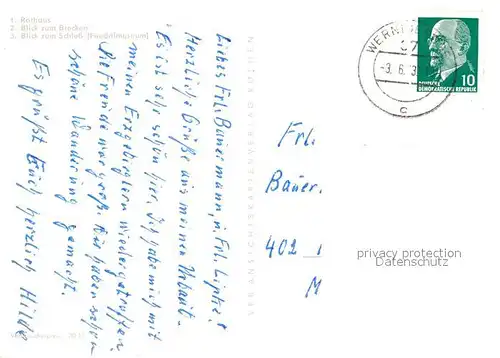 1. Rathaus
2. Blick zum Brocken
3. Blick zum Schloß (Feudalmuseum)
Liebes Frl. Bauermann, u. Frl. Lipke!
Herzliche Grüße aus meinem Urlaub.
Es ist sehr schön hier. Ich habe mich mit
meinen Erzgebirglern wiedergetroffen.
Die Freude war groß. Wir haben schon
schöne Wanderung gemacht.
Es grüßt Euch herzlich Hilde
VEB ANSICHTSKARTENVERLAG
WERNI
-3. 6.
c
10
DEUTSCHE
DEMOKRATISCHE REPUBLIK
Frl.
Bauer.
402 1
M
privacy protection
Datenschutz